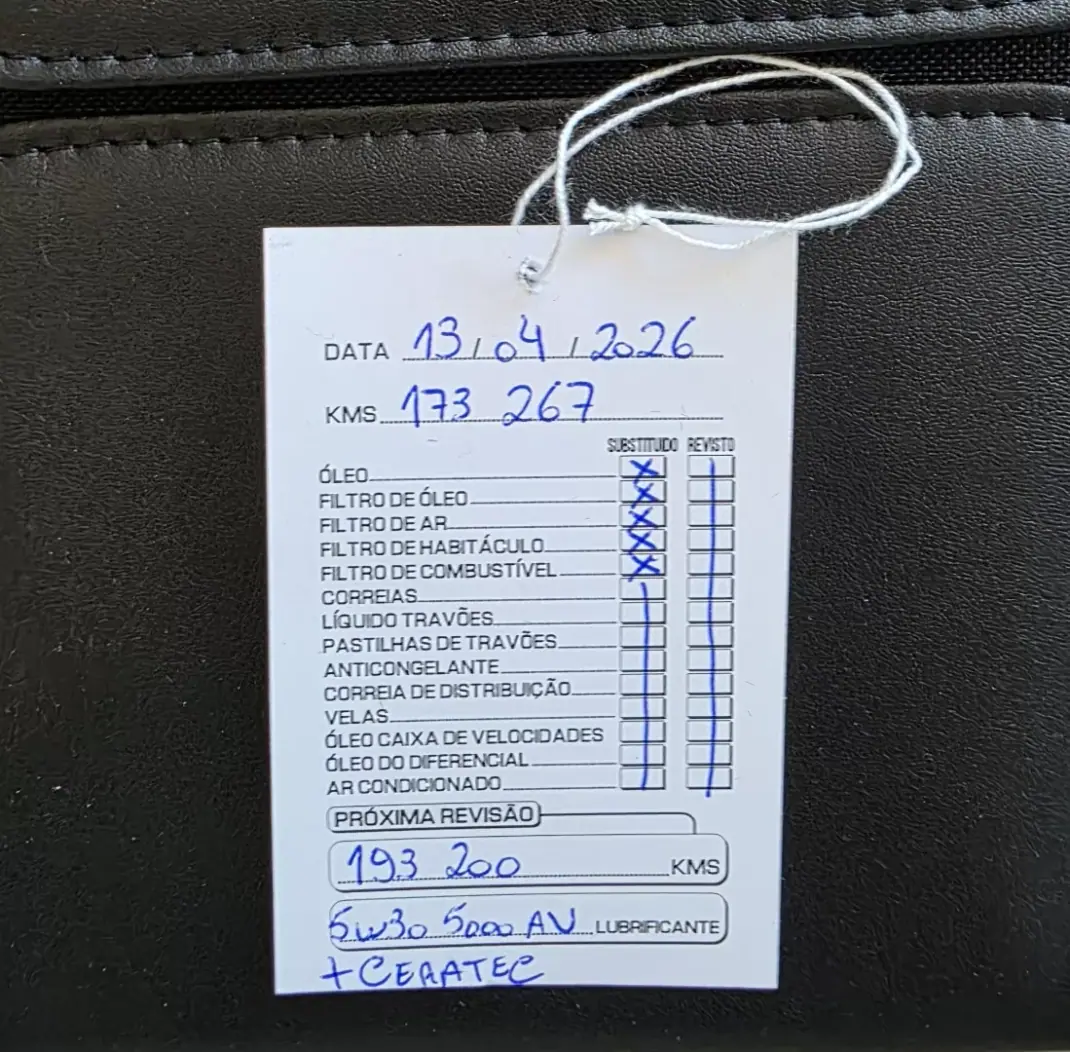 DATA 13/04/2026
KMS 173 267
SUBSTITUIDO REVISTO
ÓLEO X
FILTRO DE ÓLEO X
FILTRO DE AR X
FILTRO DE HABITÁCULO X
FILTRO DE COMBUSTÍVEL X
CORREIAS
LÍQUIDO TRAVÕES
PASTILHAS DE TRAVÕES
ANTICONGELANTE
CORREIA DE DISTRIBUIÇÃO
VELAS
ÓLEO CAIXA DE VELOCIDADES
ÓLEO DO DIFERENCIAL
AR CONDICIONADO
PRÓXIMA REVISÃO
193 200 KMS
5W30 5000 AV LUBRIFICANTE
+ CERATEC